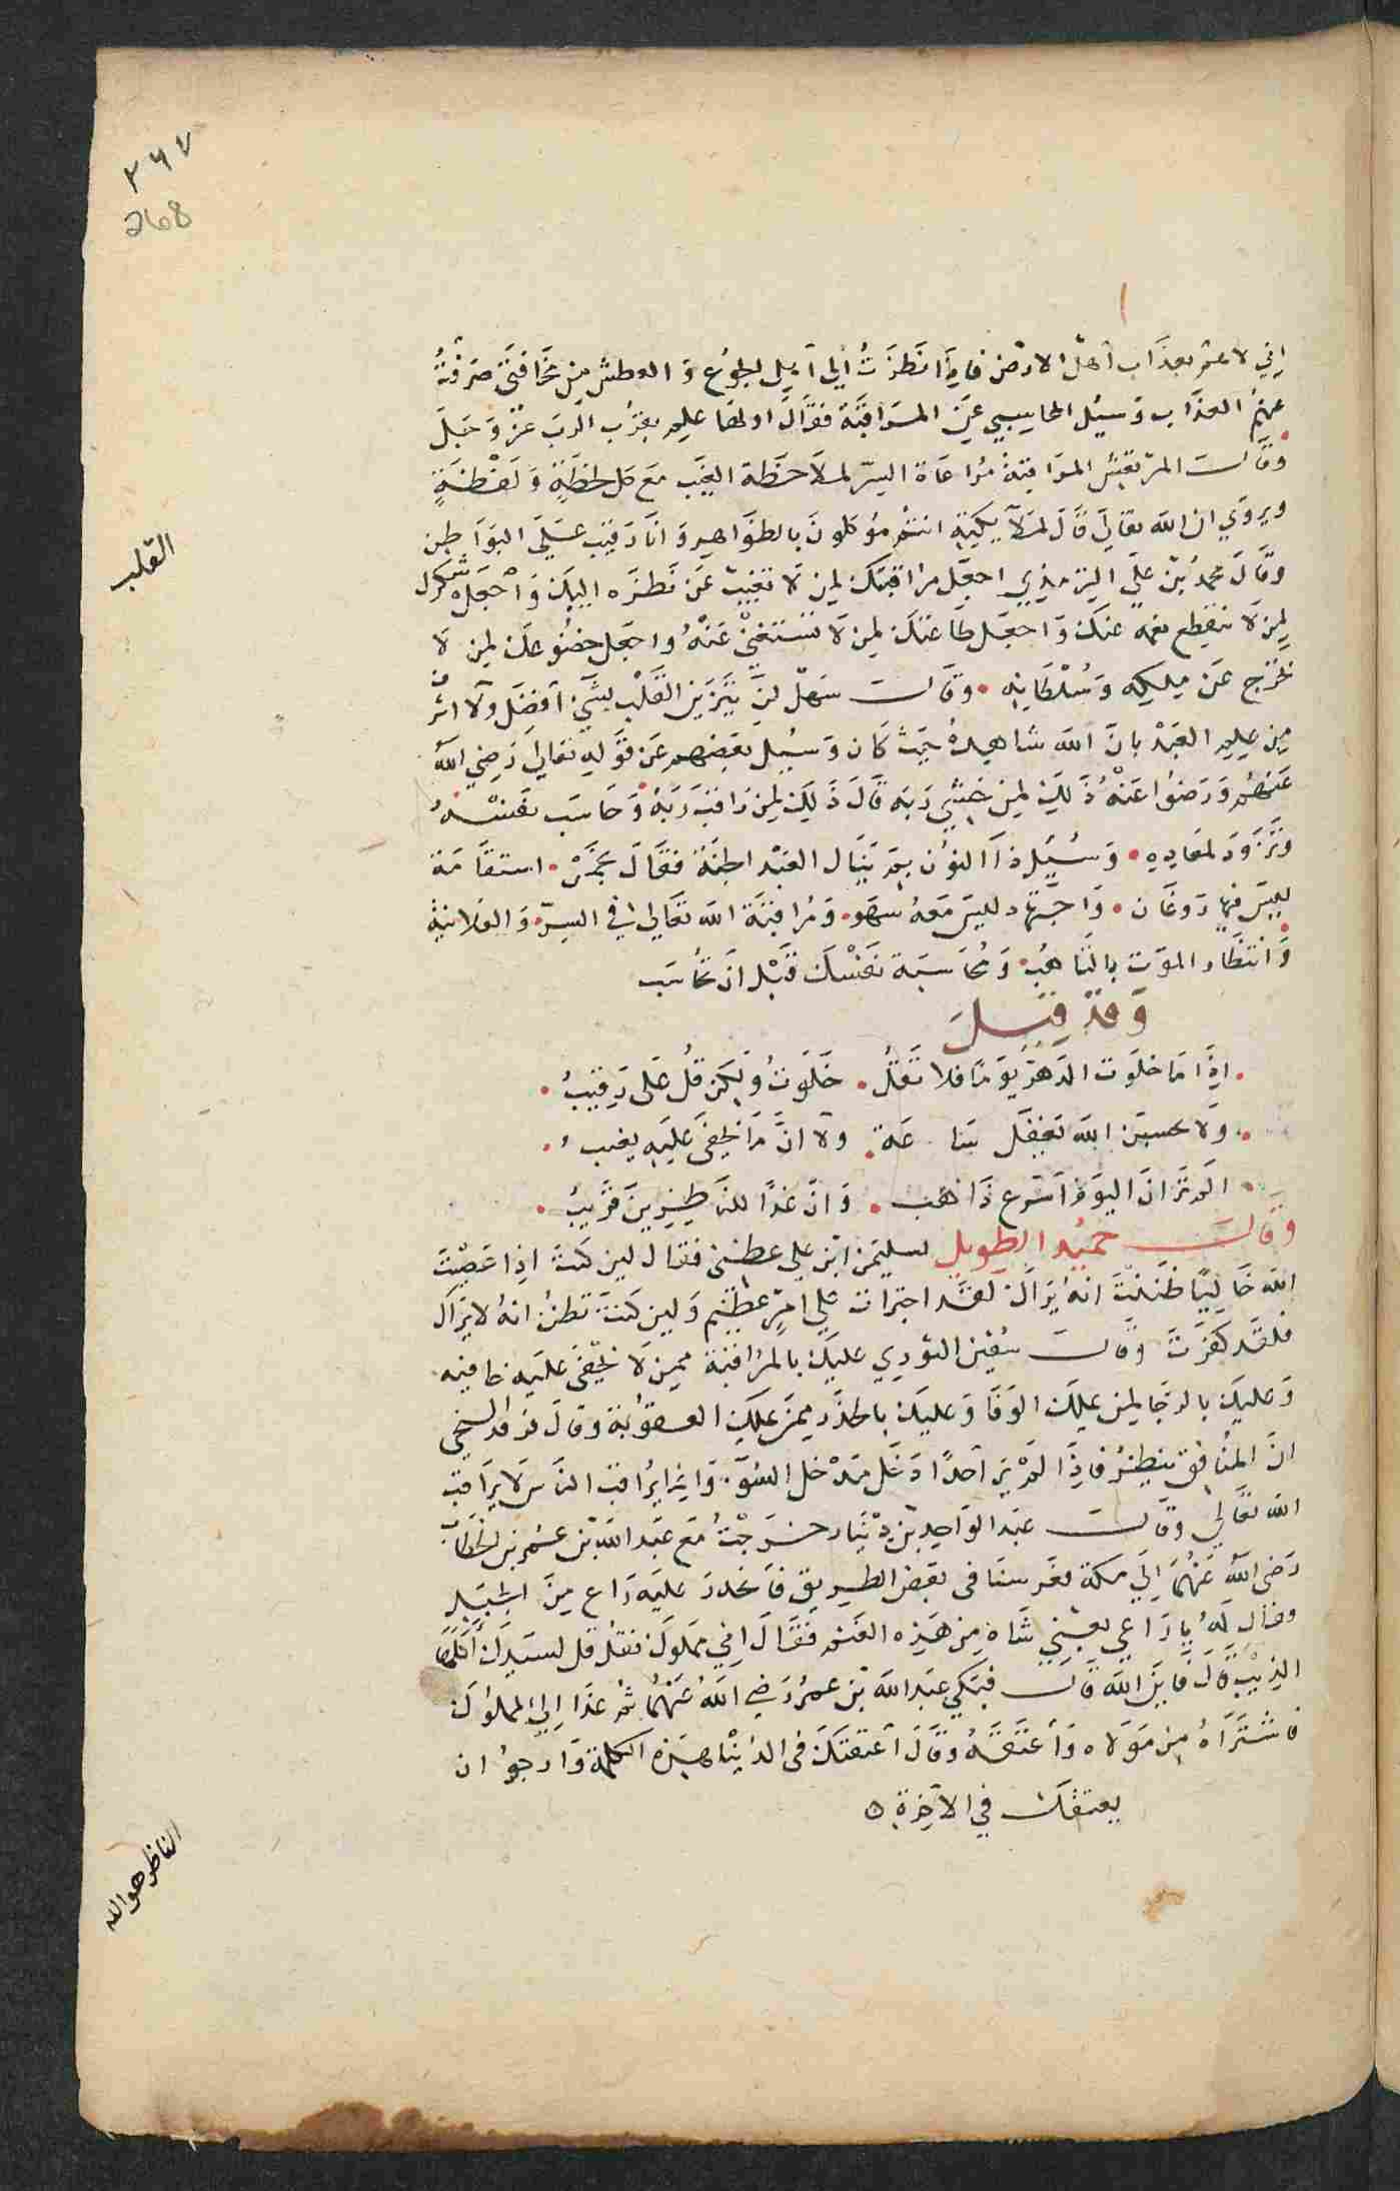 ٢٦٧
268
اني لاهم بعذاب اهل الارض فاذا نظرت الي اهل الجوع والعطش من مخافتي صرفت
عنهم العذاب وسئل المحاسبي عن المراقبة فقال اولها علم بقرب الرب عز وجل
وقال المرتعش المراقبة مراعاة السر لملاحظة الغيب مع كل لحظة ولفظة
ويروي ان الله تعالي قال لملايكته انتم موكلون بالظواهر وانا رقيب علي البواطن
وقال محمد بن علي الترمذي اجعل مراقبتك لمن لا تغيب عن نظره اليك واجعل شكرك
لمن لا تنقطع نعمه عنك واجعل طاعتك لمن لا تستغني عنه واجعل خضوعك لمن لا
تخرج عن ملكه وسلطانه وقال سهل لن يتزين القلب بشي افضل ولا اشرف
من علم العبد بان الله شاهده حيث كان وسئل بعضهم عن قوله تعالي رضي الله
عنهم ورضوا عنه ذلك لمن خشي ربه قال ذلك لمن راقب ربه وحاسب نفسه
وتزود لمعاده وسئل ذا النون بم ينال العبد الجنة فقال بخمس استقامة
ليس فيها روغان واجتهاد ليس معه سهو ومراقبة الله تعالي في السر والعلانية
وانتظار الموت بالتاهب ومحاسبة نفسك قبل ان تحاسب
وقد قيل
اذا ما خلوت الدهر يوما فلا تقل خلوت ولكن قل علي رقيب
ولا تحسبن الله يغفل ساعة ولا ان ما يخفي عليه يغيب
الم تر ان اليوم اسرع ذاهب وان غدا للناظرين قريب
وقال حميد الطويل لسليمن ابن علي عظني فقال لين كنت اذا عصيت
الله خاليا ظننت انه يراك لقد اجترات علي امر عظيم ولين كنت تظن انه لا يراك
فلقد كفرت وقال سفين الثوري عليك بالمراقبة ممن لا تخفي عليه خافيه
وعليك بالرجا لمن يملك الوفا وعليك بالحذر ممن يملك العقوبة وقال فرقد السبخي
ان المنافق ينظر فاذا لم ير احدا دخل مدخل السو وانما يراقب الناس لا يراقب
الله تعالي وقال عبد الواحد بن دينار خرجت مع عبد الله بن عمر بن الخطاب
رضي الله عنهما الي مكة فعرسنا في بعض الطريق فانحدر عليه راع من الجبل
وقال له يا راعي بعني شاة من هذه الغنم فقال اني مملوك فقال قل لسيدك اكلها
الذيب قال فاين الله قال فبكي عبد الله بن عمر رضي الله عنهما ثم غدا الي المملوك
فاشتراه من مولاه واعتقه وقال اعتقتك في الدنيا هذه الكلمة وارجوا ان
يعتقك في الآخرة
القلب
الناظر هو الله